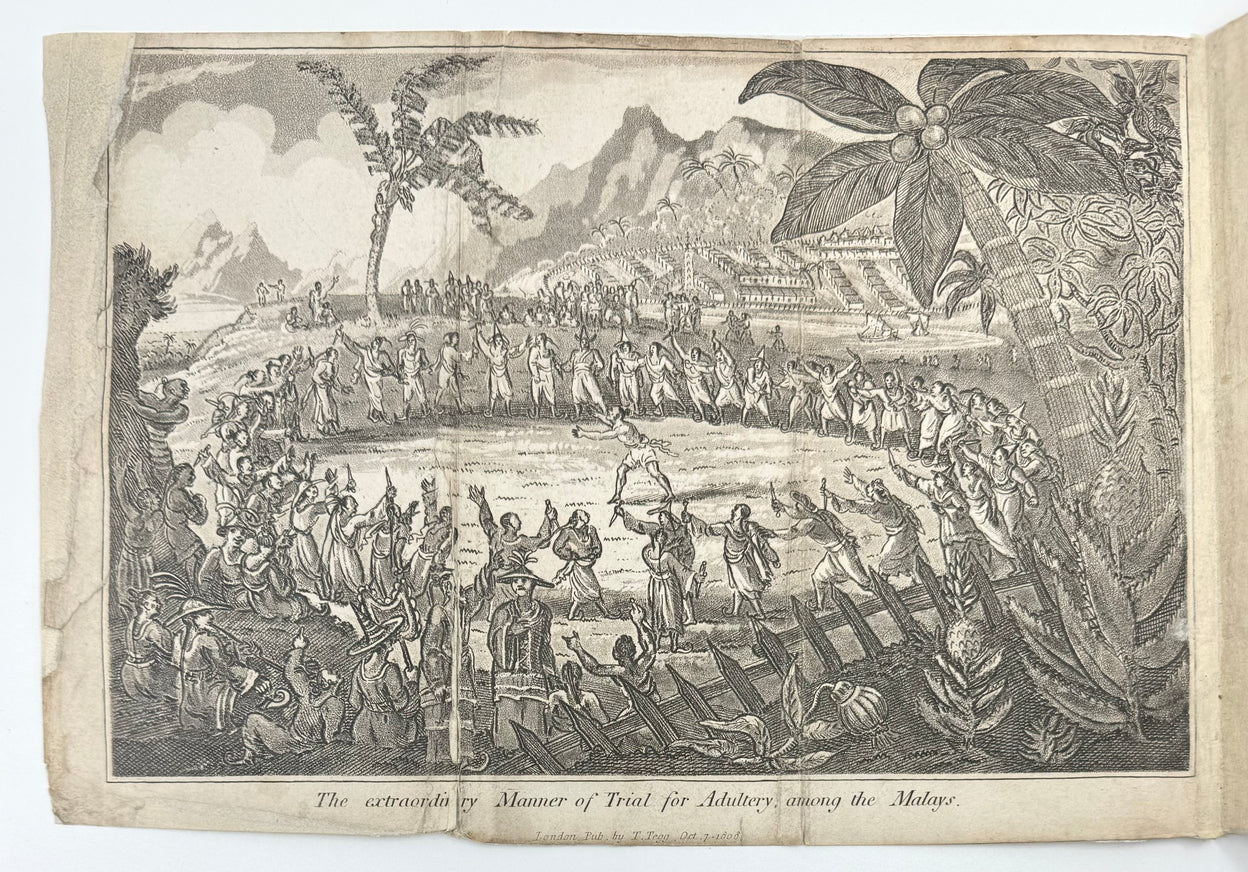 The extraordin ry Manner of Trial for Adultery, among the Malays.
London Pub. by T. Tegg Oct. 7-1808.